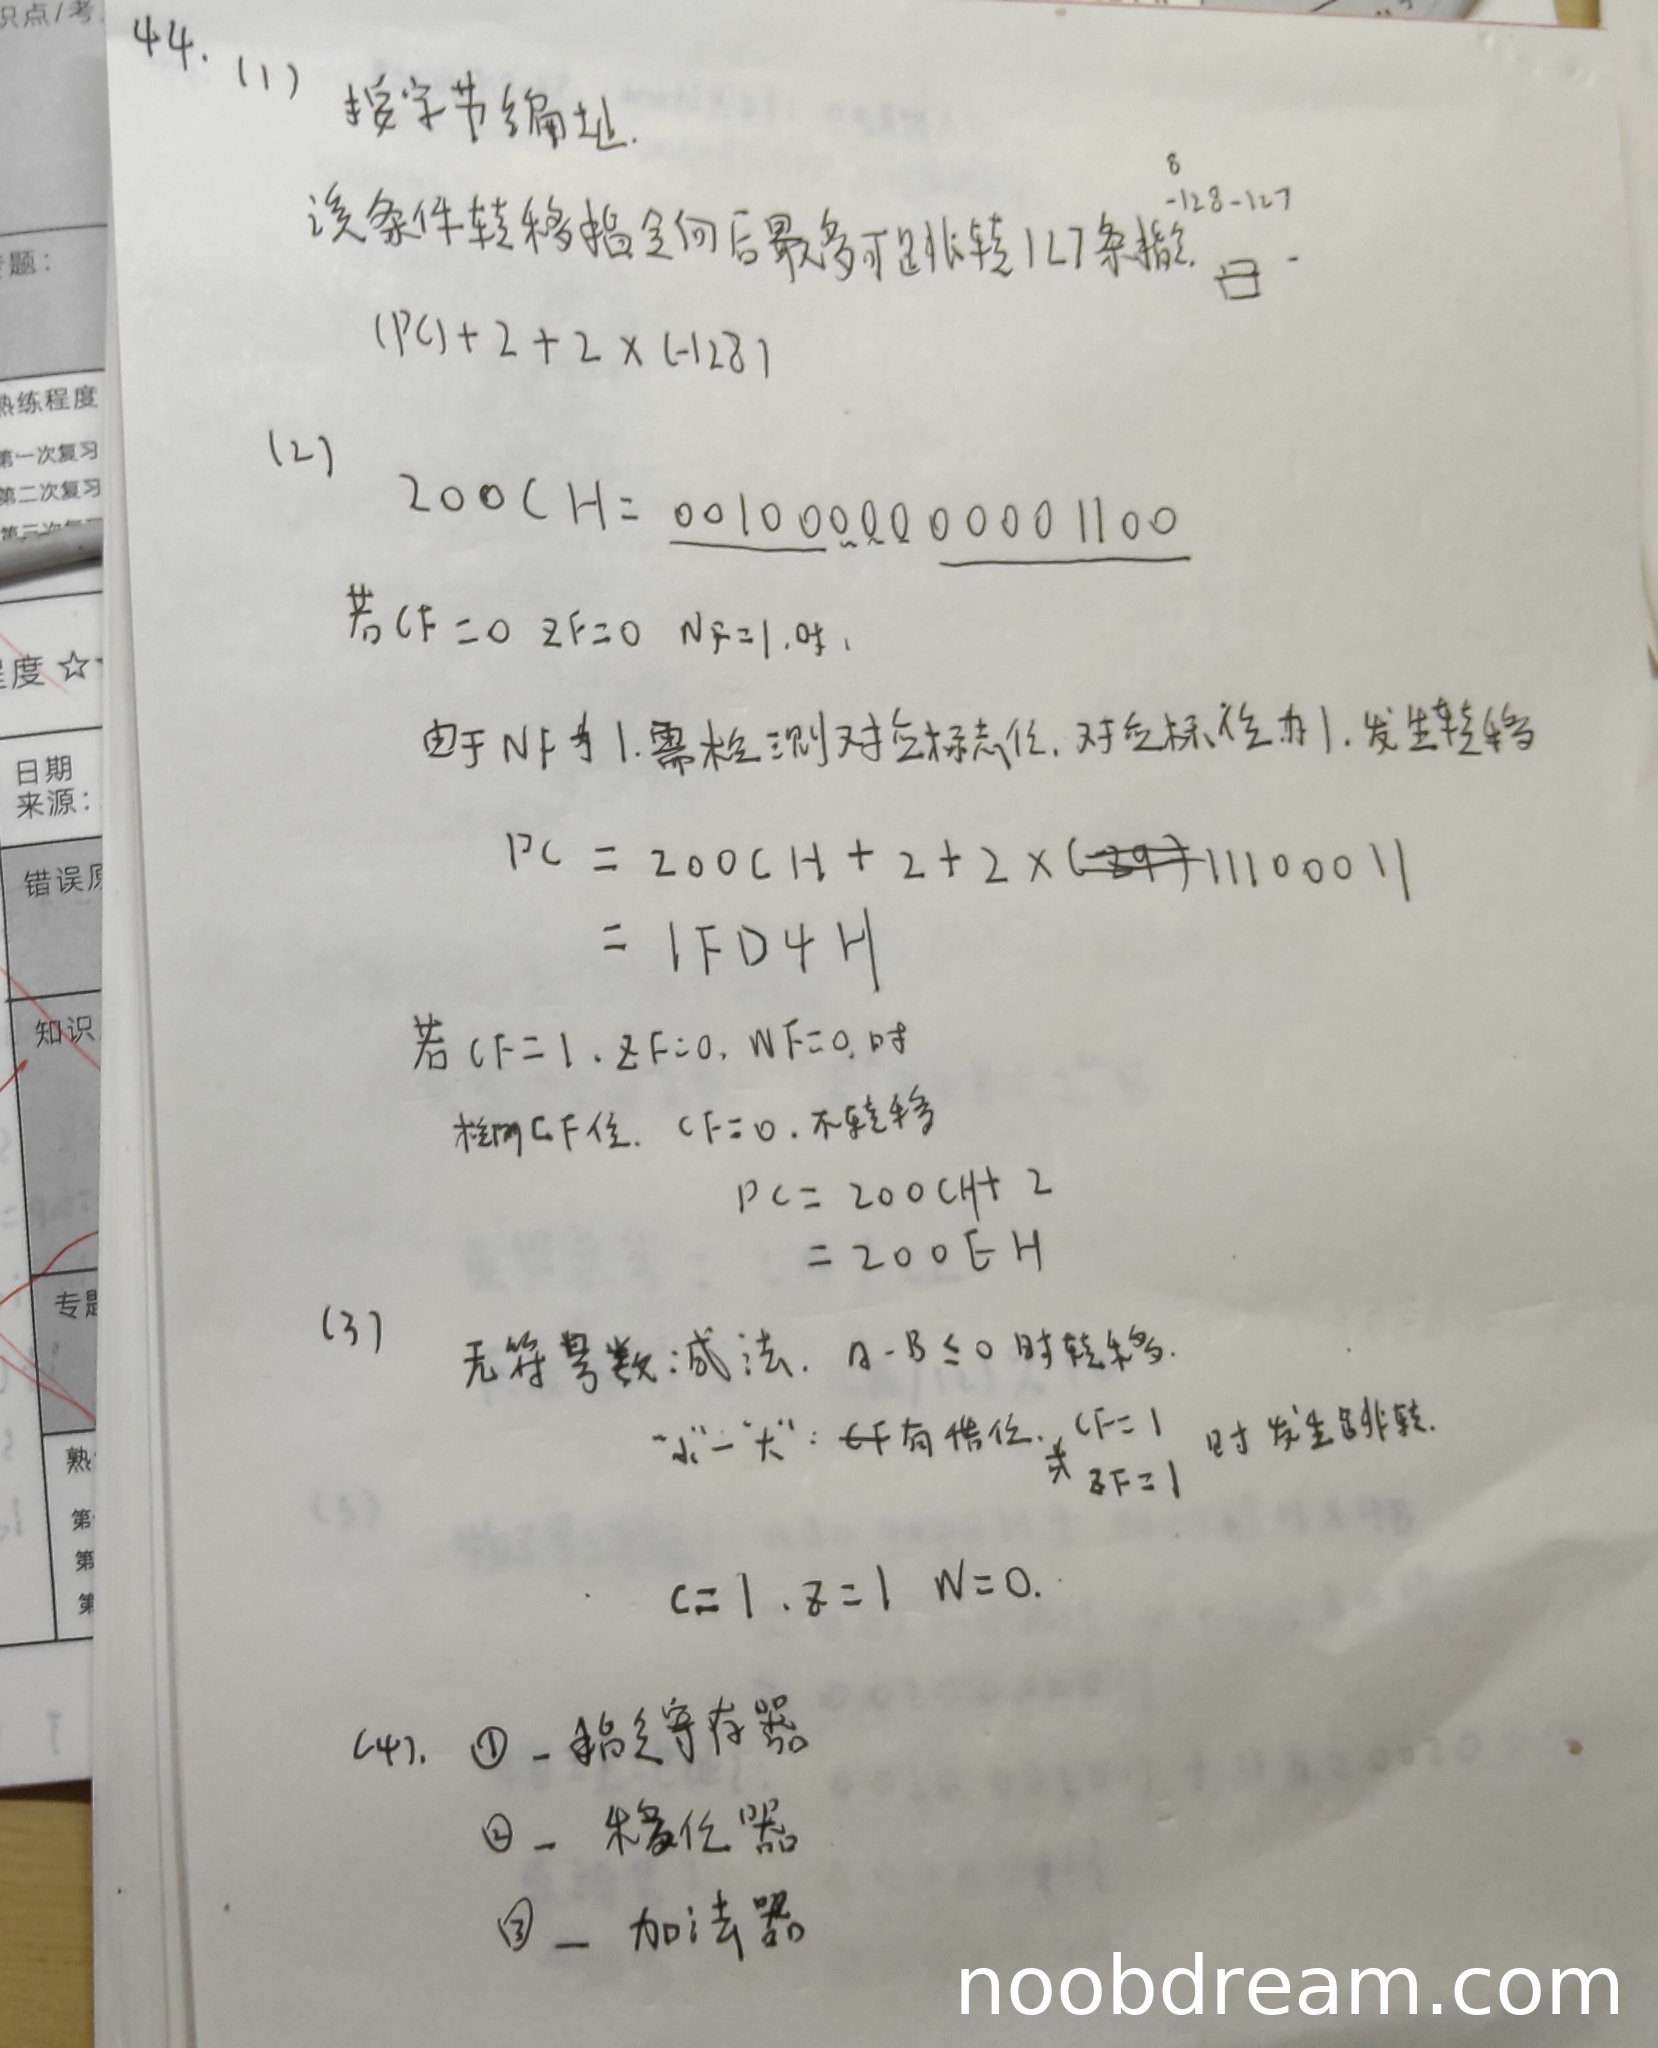 识点/考
专题：
熟练程度
第一次复习
第二次复习
第三次复习
程度 ☆
日期
来源：
错误原
知识
专题
熟
第
第
第
44.
(1) 按字节编址.
8
-128-127
该条件转移指令向后最多可跳转127条指令.
(PC)+2+2×(-128)
(2)
200CH = 0010000000001100
若CF=0 ZF=0 NF=1.时,
由于NF为1.需检测对应标志位.对应标志位为1.发生转移
PC = 200CH+2+2×11100011
= 1FD4H
若CF=1.ZF=0.NF=0.时
检测CF位. CF=0.不转移
PC= 200CH+2
= 200EH
(3)
无符号数:减法. A-B≤0时转移.
"小"-"大":有借位. CF=1
或 ZF=1 时发生跳转.
C=1.Z=1 N=0.
(4). ①- 指令寄存器
②- 移位器
③- 加法器
noobdream.com